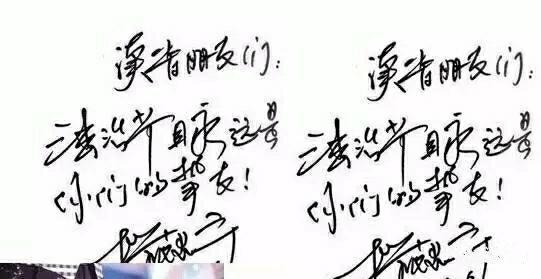 读者朋友们:
读者朋友们:
法治节目永远是
法治节目永远是
你们的挚友!
你们的挚友!